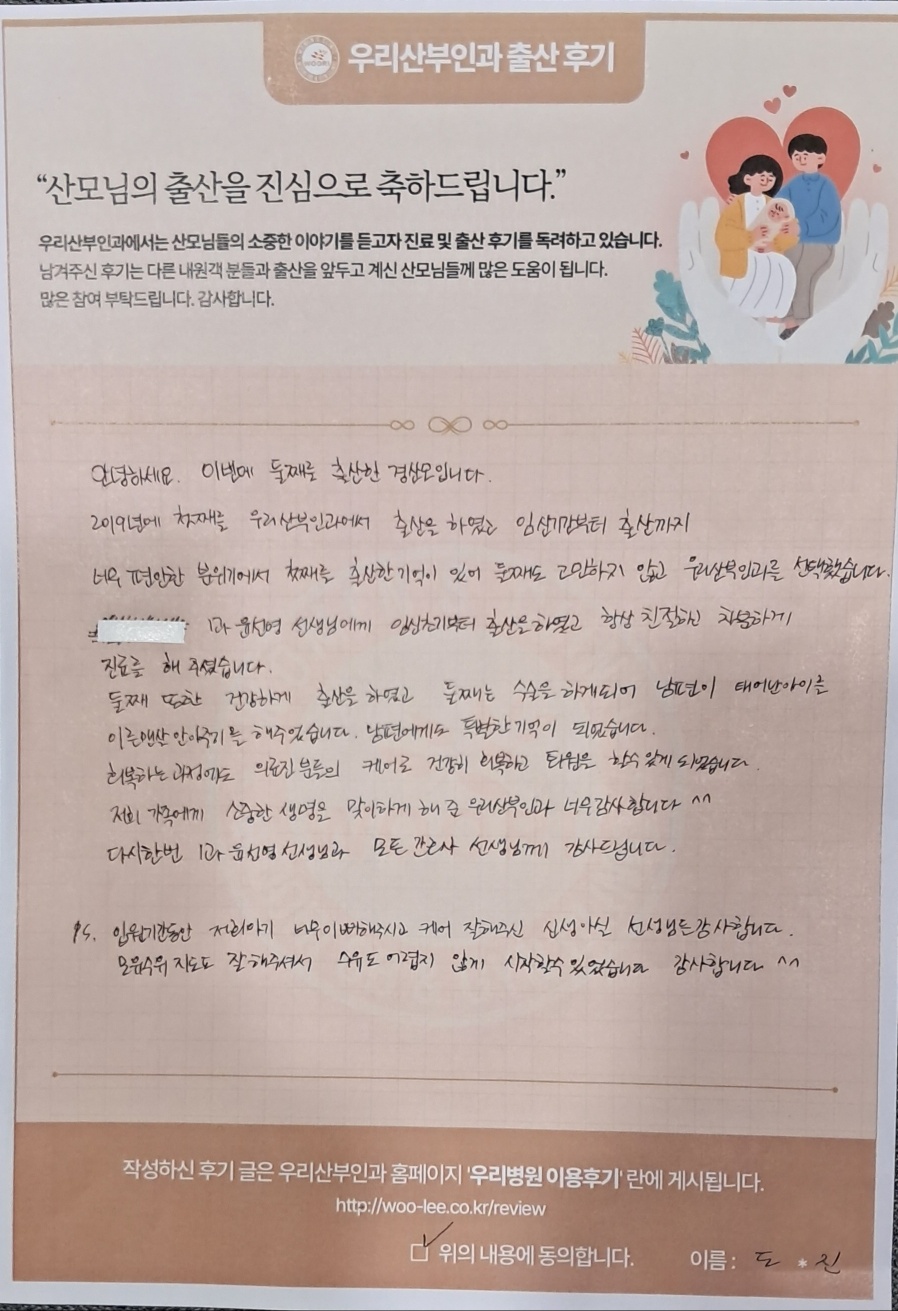 우리산부인과 출산 후기
“산모님의 출산을 진심으로 축하드립니다.”
우리산부인과에서는 산모님들의 소중한 이야기를 듣고자 진료 및 출산 후기를 독려하고 있습니다.
남겨주신 후기는 다른 내원객 분들과 출산을 앞두고 계신 산모님들께 많은 도움이 됩니다.
많은 참여 부탁드립니다. 감사합니다.
안녕하세요. 이번에 둘째를 출산한 경산모입니다.
2019년에 첫째를 우리산부인과에서 출산을 하였고 임신기간부터 출산까지
너무 편안한 분위기에서 첫째를 출산한 기억이 있어 둘째도 고민하지 않고 우리산부인과를 선택했습니다.
1과 윤선영 선생님에게 임신초기부터 출산을 하였고 항상 친절하고 차분하게
진료를 해 주셨습니다.
둘째 또한 건강하게 출산을 하였고 둘째는 수술을 하게되어 남편이 태어난아이를
이른맨살 안아주기를 해주었습니다. 남편에게도 특별한 기억이 되었습니다.
회복하는 과정에도 의료진 분들의 케어로 건강히 회복하고 퇴원을 할수 있게 되었습니다.
저희 가족에게 소중한 생명을 맞이하게 해 준 우리산부인과 너무 감사합니다 ^^
다시한번 1과 윤선영 선생님과 모든 간호사 선생님께 감사드립니다.
PS. 입원기간동안 저희아기 너무이뻐해주시고 케어 잘해주신 신생아실 선생님들 감사합니다.
모유수유 지도도 잘 해주셔서 수유도 어렵지 않게 시작할수 있었습니다 감사합니다 ^^
작성하신 후기 글은 우리산부인과 홈페이지 '우리병원 이용후기' 란에 게시됩니다.
http://woo-lee.co.kr/review
위의 내용에 동의합니다. 이름 : 도 * 진